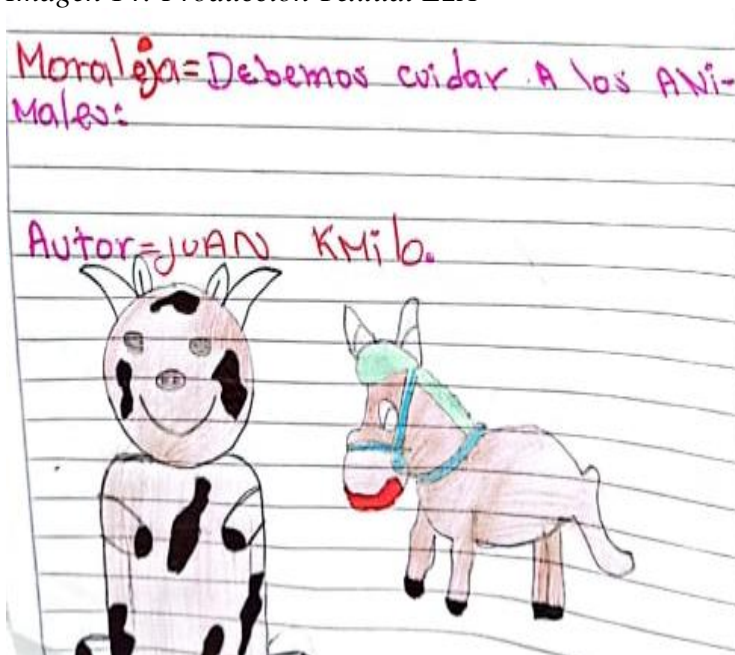 Moraleja=Debemos cuidar A los ANi-
Males:
Autor=JUAN KMilo.